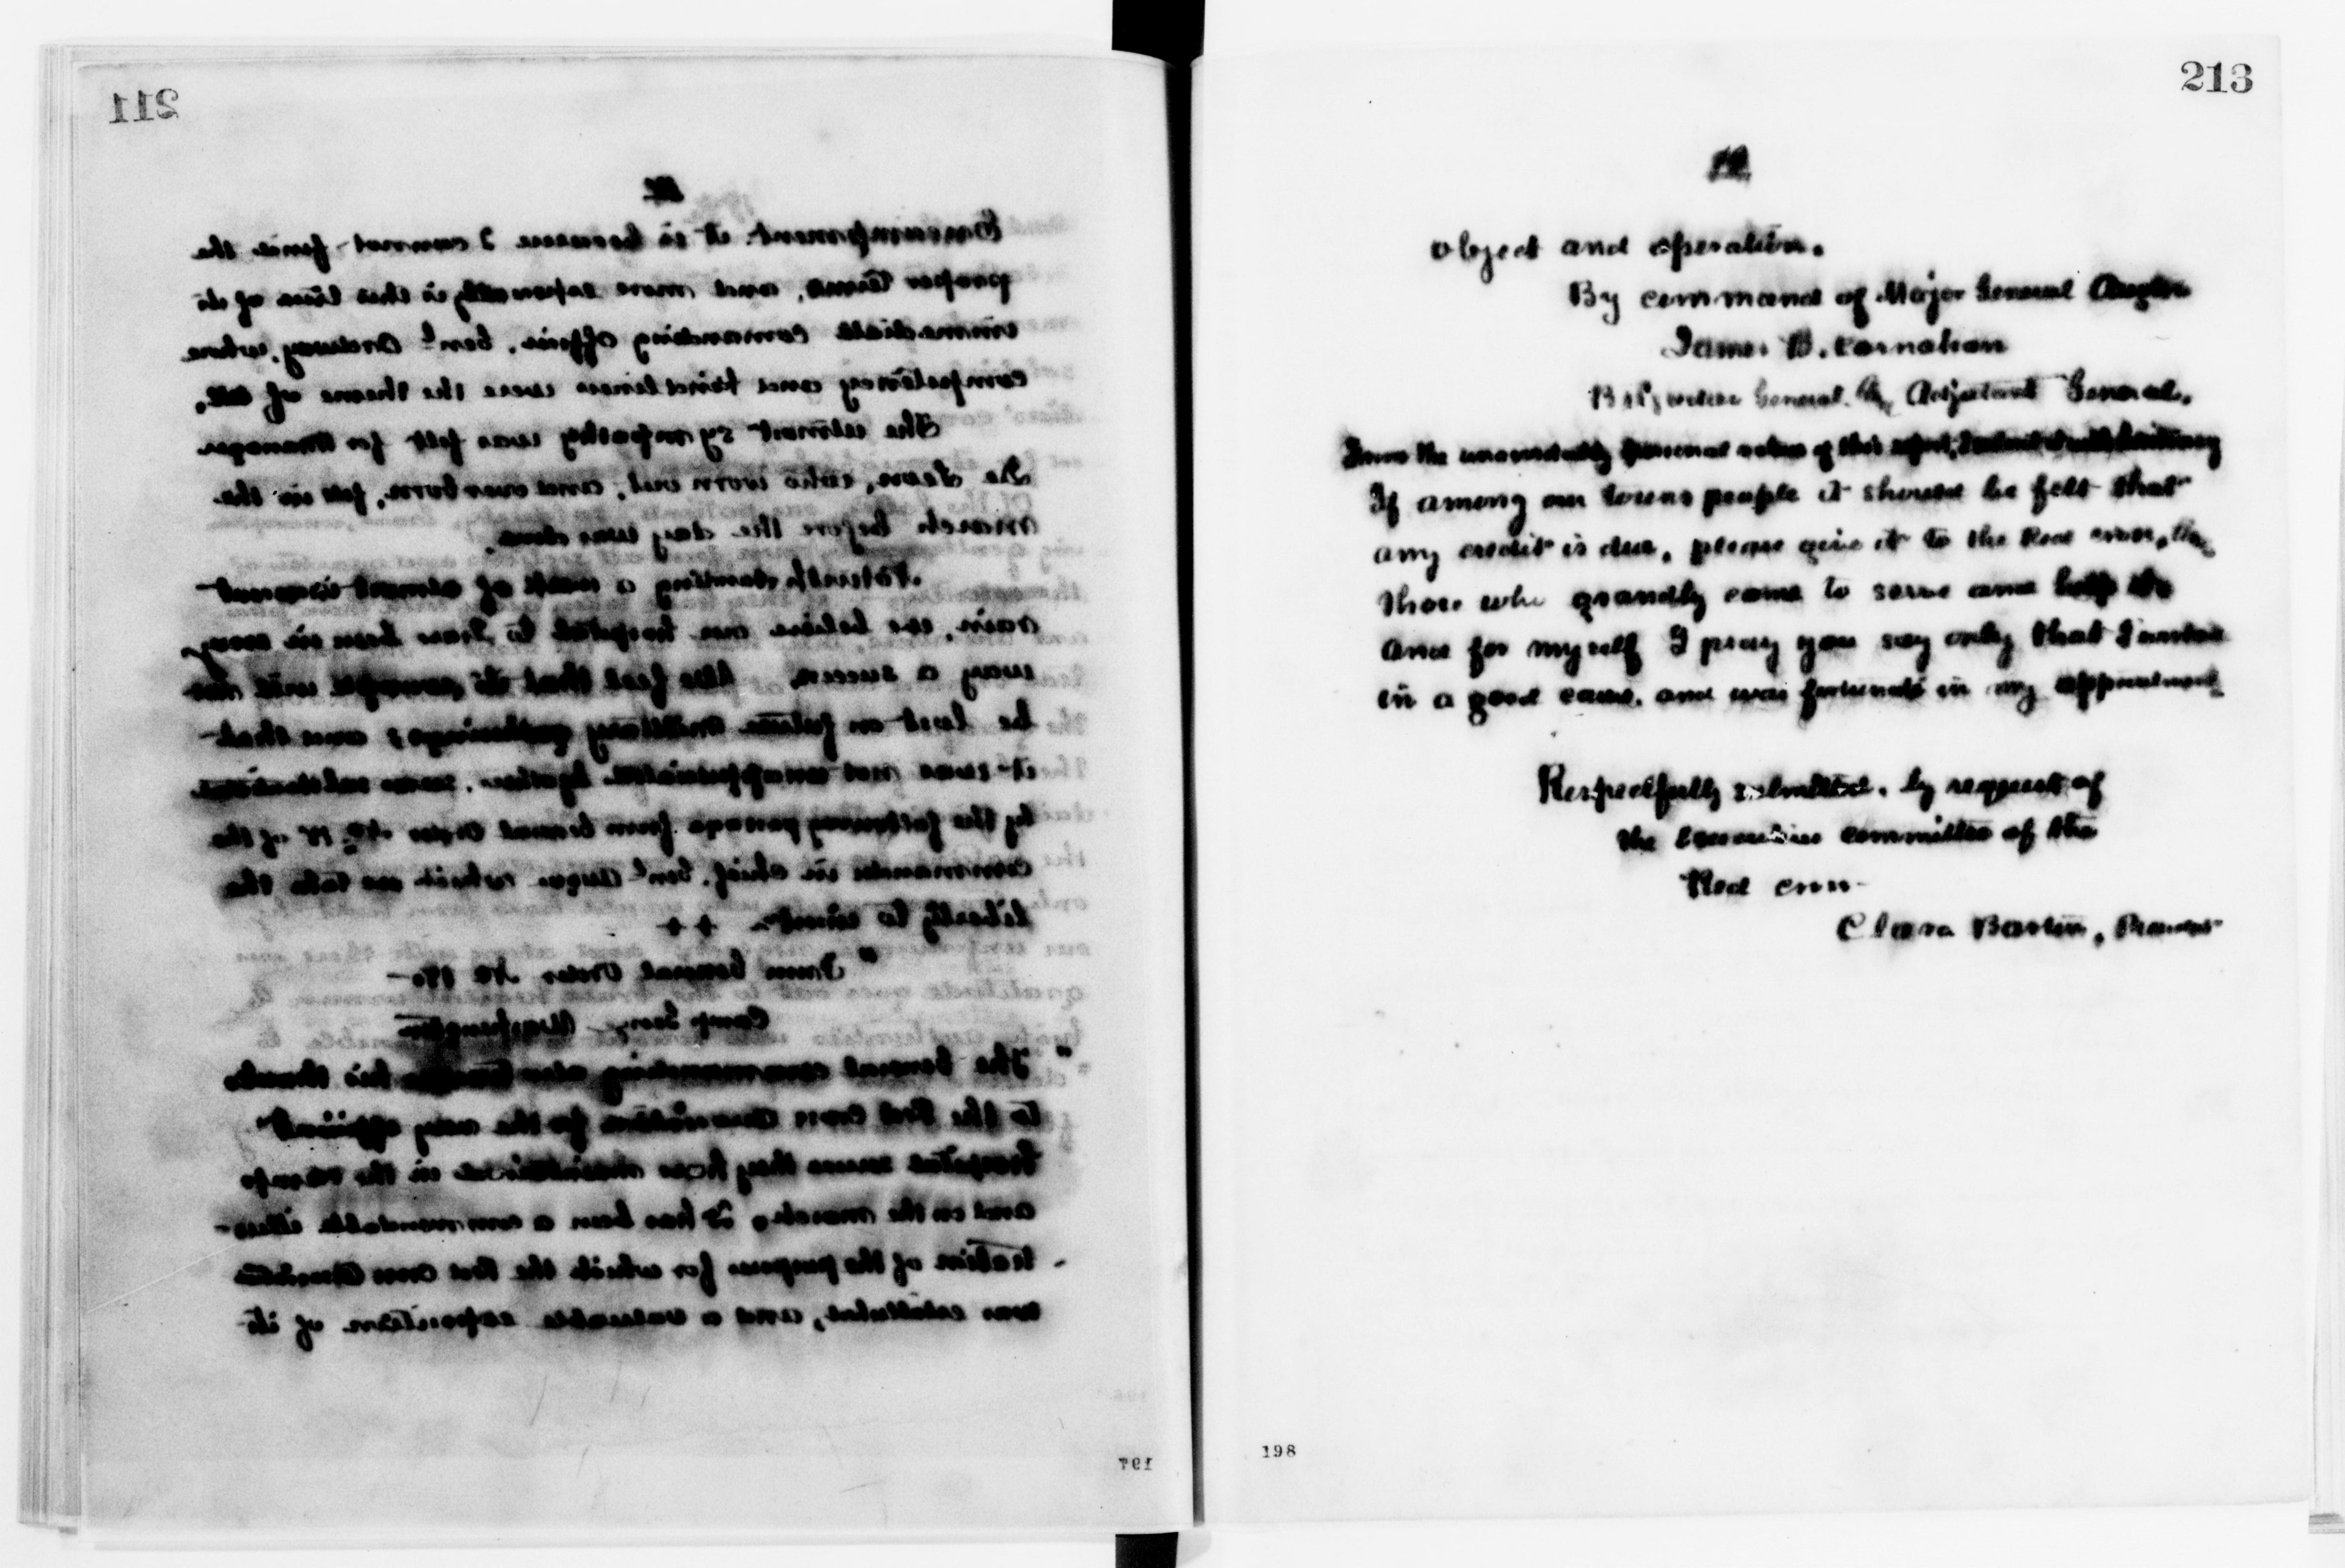 211
Encampment. it is because I cannot find the
proper terms, and more especially is this true of its
immediate commanding officer, Genl Ordway, whose
competency and kindliness were the theme of all.
The utmost sympathy was felt for
who worn out, and overborn, fell in the
march before the day was done.
Notwithstanding a week of almost incessant
rain, we believe our hospital to have been in every
way a success. We feel that its example will not
be lost on future military gatherings; and that
it was not unappreciated
by the following passage from General Order No of the
commander in chief, Genl Augur which we take the
liberty to
"From General Order No 19.
Camp Washington
"The General commanding also his thanks
to the Red Cross Association for the very efficient
hospital service they have maintained in the camp
and on the march, It has been a commendable illus-
tration of the purpose for which the Red Cross
was established, and a valuable exposition of its
197
213
object and operation.
By command of Major General
James B. Carnahan
Brigadier General & Adjutant General.
From the unavoidably personal nature of this report,
If among our towns people it should be felt that
any credit is due, please give it to the Red Cross,
those who grandly came to serve and help
and for myself I pray you say only that I
in a good cause, and was fortunate in my
Respectfully submitted, by request of
the Executive committee of the
Red Cross
Clara Barton, President
198